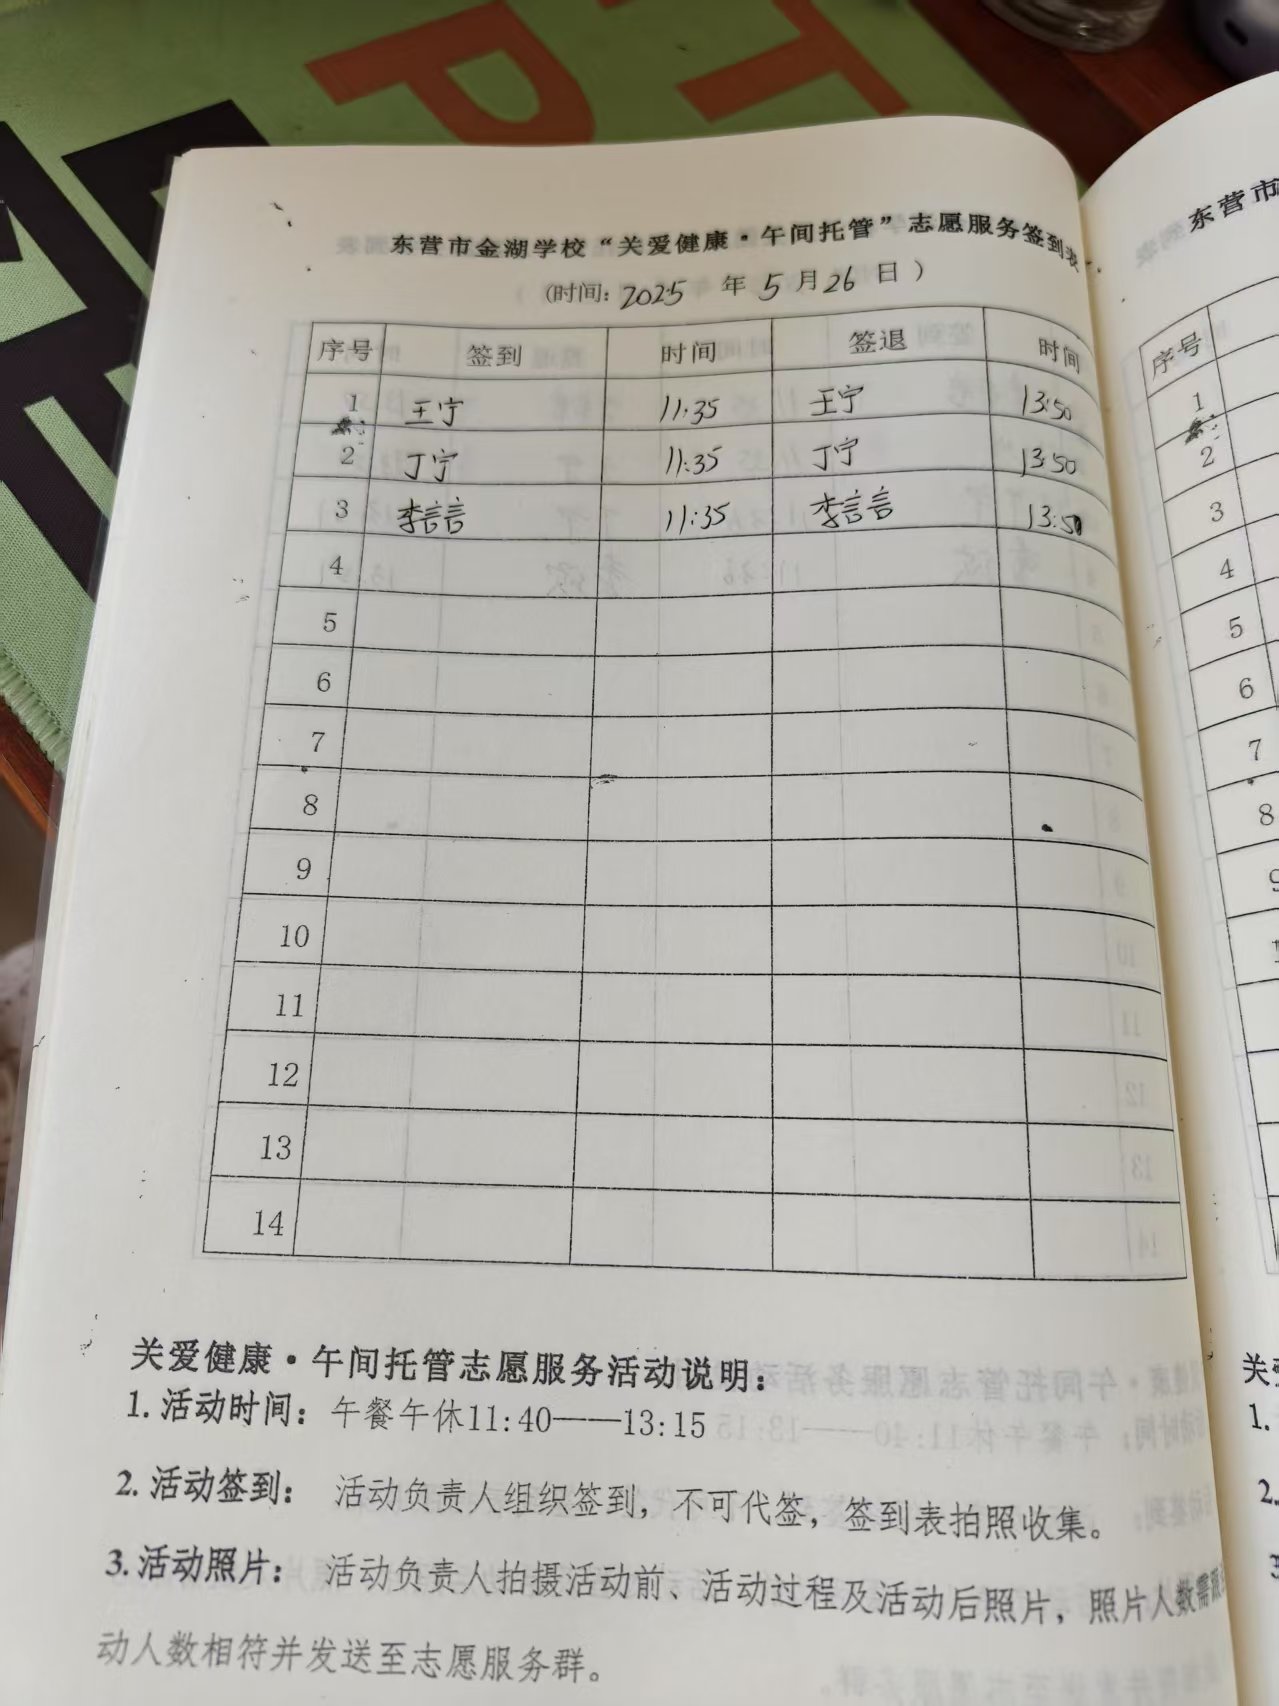 东营市金湖学校“关爱健康·午间托管”志愿服务签到表
(时间: 2025 年 5 月 26 日 )
序号 签到 时间 签退 时间
1 王宁 11:35 王宁 13:50
2 丁宁 11:35 丁宁 13:50
3 李言言 11:35 李言言 13:50
4
5
6
7
8
9
10
11
12
13
14
关爱健康·午间托管志愿服务活动说明:
1. 活动时间: 午餐午休11:40——13:15
2. 活动签到: 活动负责人组织签到，不可代签，签到表拍照收集。
3. 活动照片: 活动负责人拍摄活动前、活动过程及活动后照片，照片人数需
动人数相符并发送至志愿服务群。
东营市
序号
1
2
3
4
5
6
7
8
关
1.
2.